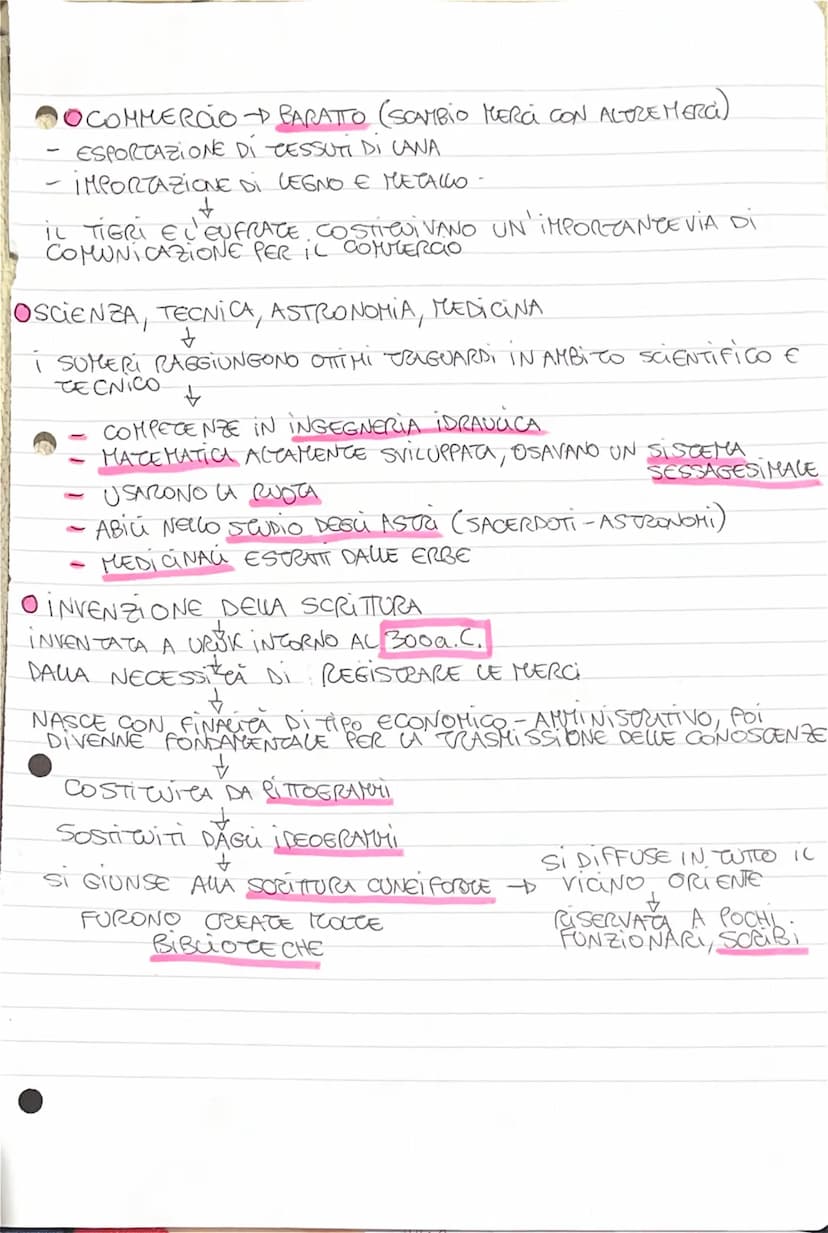 COMMERCIO → BARATTO (SCAMBIO MERCI CON ALTRE MERCI)
- ESPORTAZIONE DI TESSUTI DI LANA
- IMPORTAZIONE DI LEGNO E METALLO
↓
IL TIGRI E L'EUFRATE COSTITUIVANO UN'IMPORTANTE VIA DI
COMUNICAZIONE PER IL COMMERCIO
SCIENZA, TECNICA, ASTRONOMIA, MEDICINA
↓
I SUMERI RAGGIUNGONO OTTIMI TRAGUARDI IN AMBITO SCIENTIFICO E
TECNICO
↓
- COMPETENZE IN INGEGNERIA IDRAULICA
- MATEMATICA ALTAMENTE SVILUPPATA, USAVANO UN SISTEMA
SESSAGESIMALE
- USARONO LA RUOTA
- ABILI NELLO STUDIO DEGLI ASTRI (SACERDOTI - ASTRONOMI)
- MEDICINALI ESTRATTI DALLE ERBE
INVENZIONE DELLA SCRITTURA
↓
INVENTATA A URUK INTORNO AL 300 a.C.
↓
DALLA NECESSITÀ DI REGISTRARE LE MERCI
↓
NASCE CON FINALITÀ DI TIPO ECONOMICO - AMMINISTRATIVO, POI
DIVENNE FONDAMENTALE PER LA TRASMISSIONE DELLE CONOSCENZE
↓
COSTITUITA DA PITTOGRAMMI
↓
SOSTITUITI DAGLI IDEOGRAMMI
↓
SI GIUNSE ALLA SCRITTURA CUNEIFORME → SI DIFFUSE IN TUTTO IL
VICINO ORIENTE
↓
RISERVATA A POCHI
FUNZIONARI, SCRIBI
FURONO CREATE MOLTE
BIBLIOTECHE